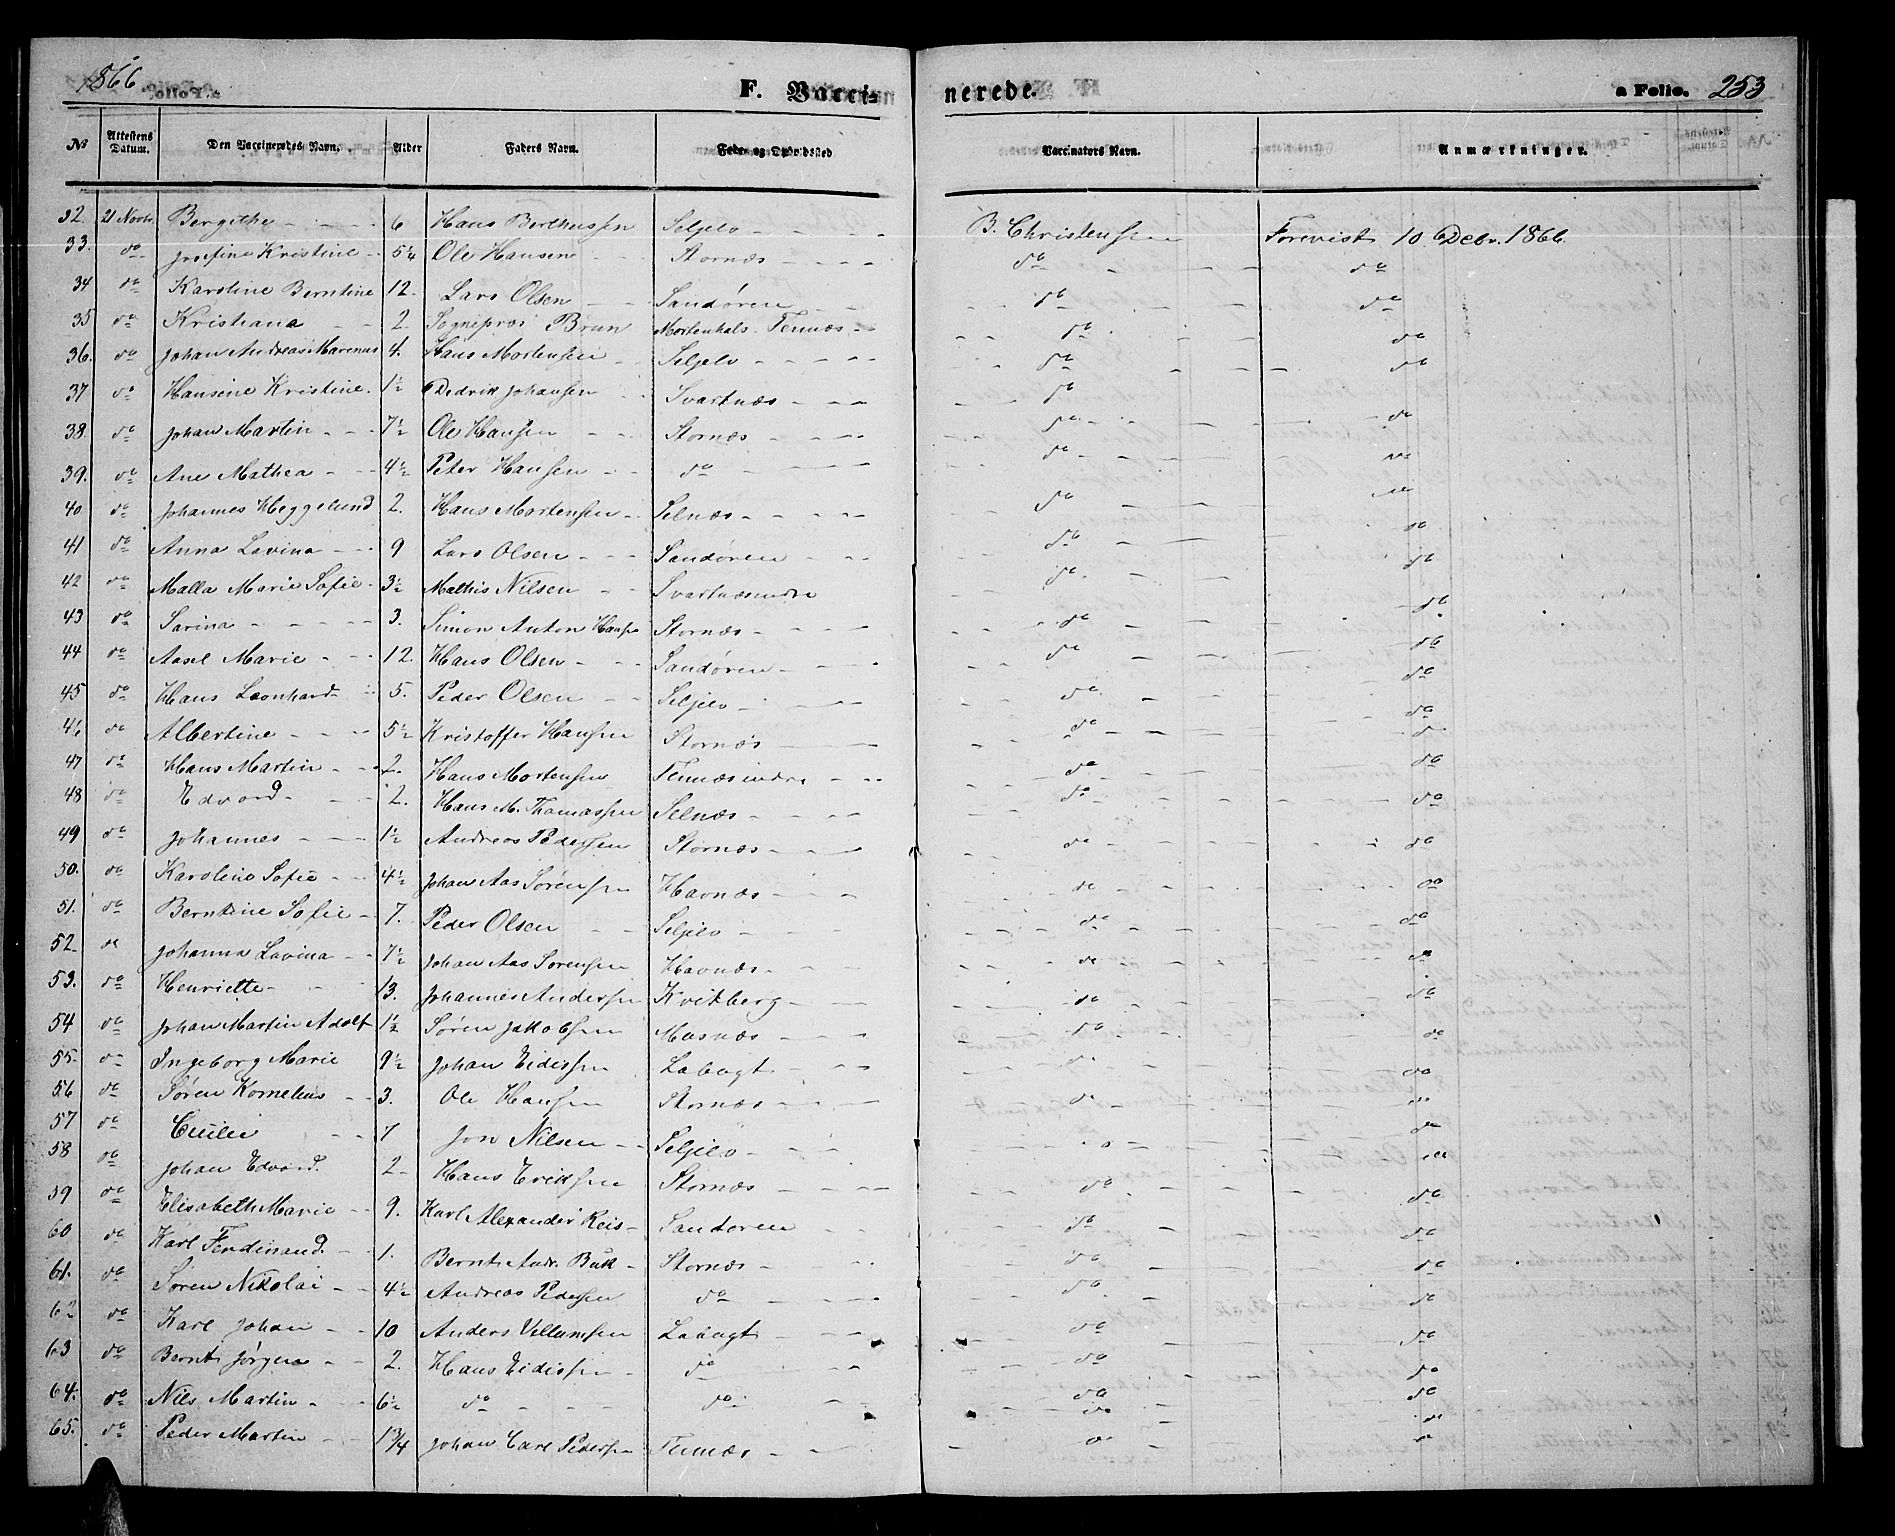 1866
F. Vacci- nerede.
a Folio. 253
No Attestens Datum. Den Vaccineredes Navn. Alder Faders Navn. Føde- og Opholdssted Vaccinators Navn. Anmærkninger.
32. 21 Novbr. Bergithe - - - 6 Hans Berthussen Seljelv - - - - B. Christensen Forevist 10 Decbr. 1866.
33. do Josefine Kristine - 5¼ Ole Hansen - - Stornæs - - - - do - - - do
34 do Karoline Berntine 12. Lars Olsen - - Sandøren - - - - do - - do
35 do Kristiana - - 2. Sognepræs Brun Mortenhals. Tennæs - - do - do
36. do Johan Andreas Marenus 4. Hans Mortensen - Seljelv - - - - do - - do
37 do Hansine Kristine. 1½ Dedrik Johansen - Svartnæs - - - do
38. do Johan Martin - - - 7½ Ole Hansen - - Stornæs - - - - do - - do
39. do Ane Mathea - - - 4½ Peter Hansen - - do - - - - do - - do
40 do Johannes Heggelund 2. Hans Mortensen - Selnæs - - - - do - - do
41 do Anna Lavina - - - 9 Lars Olsen - - - Sandøren - - - do - - do
42 do Malla Marie Sofie - 3½ Mathis Nilsen - - Svartnæsindre do - - do
43 do Sarina - - - - - 3. Simon Anton Hansen Stornæs - - - - do - - do
44 do Aasel Marie - - 12. Hans Olsen - - - Sandøren - - - do - - do
45 do Hans Leonhard - 5. Peder Olsen - - Seljelv - - - - do - - do
46 do Albertine - - - - 5½ Kristoffer Hansen Stornæs - - - do - - do
47 do Hans Martin - - 2. Hans Mortensen Tennæs indre - - do - - do
48 do Edvard - - - 2. Hans M. Thomassen Selnæs - - - - do - - do
49 do Johannes - - - 1½ Andreas Pedersen Stornæs - - - do - - do
50. do Karoline Sofie - - 4½ Johan Aas Sørensen Havnæs - - - do - - do
51. do Berntine Sofie - 7. Peder Olsen - - Seljelv - - - do - - do
52. do Johanna Lavina - - 7½ Johan Aas Sørensen Havnæs - - - do - - do
53. do Henriette - - - 13. Johannes Andersen Kvitberg - - - do - - do
54 do Johan Martin Adolf 1½ Søren Jakobsen Masnæs - - - do - - do
55. do Ingeborg Marie 9½ Johan Eidissen Labugt - - - do - - do
56 do Søren Kornelius - - 3. Ole Hansen Stornæs - - - do - - do
57 do - - 7 Jon Nilsen - - Seljelv - - - do - - do
58 do Johan Edvard. 2 - Hans Eriksen Stornæs - - - do - - do
59 do Elisabeth Marie - - 9. Karl Alexander Reis - Sandøren - - do - - do
60 do Karl Ferdinand. - - 1. Bernt Andr. Bak - Stornæs - - - do - - do
61. do Søren Nikolai - - 4½ Andreas Pedersen do - - - do - - do
62 do Karl Johan - - 10 Anders Villumsen Labugt - - - do - - do
63 do Bernt Jørgen - - 2. Hans Eidissen - do - - - do - - do
64. do Nils Martin - - 6½ do - - - do - - - do - - do
65. do Peder Martin - - 1¾ Johan Carl Pedersen Tennæs - - - do - - do